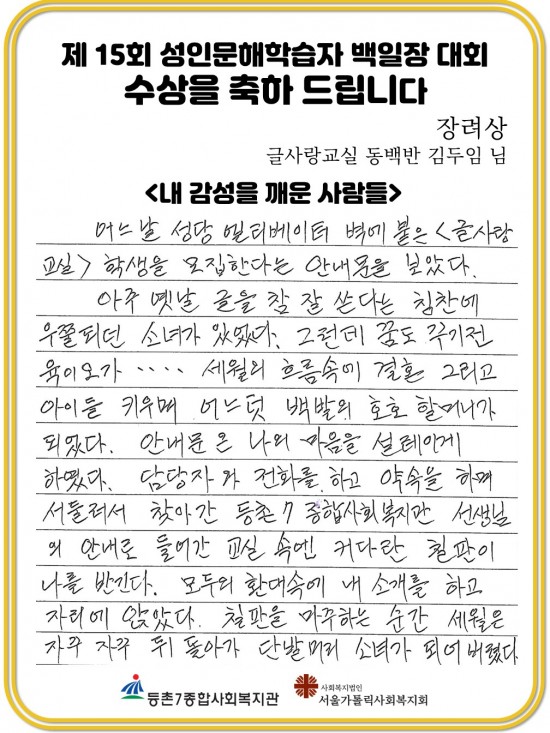 제 15회 성인문해학습자 백일장 대회
수상을 축하 드립니다
장려상
글사랑교실 동백반 김두임 님
<내 감성을 깨운 사람들>
어느날 성당 엘리베이터 벽에 붙은 <글사랑
교실> 학생을 모집한다는 안내문을 보았다.
아주 옛날 글을 참 잘 쓴다는 칭찬에
우쭐되던 소녀가 있었다. 그런데 꿈도 꾸기전
육이오가 ···· 세월의 흐름속에 결혼 그리고
아이들 키우며 어느덧 백발의 호호 할머니가
되었다. 안내문은 나의 마음을 설레이게
하였다. 담당자와 전화를 하고 약속을 하며
서둘러서 찾아간 등촌7 종합사회복지관 선생님
의 안내로 들어간 교실 속엔 커다란 칠판이
나를 반긴다. 모두의 환대속에 내 소개를 하고
자리에 앉았다. 칠판을 마주하는 순간 세월은
자꾸 자꾸 뒤 돌아가 단발머리 소녀가 되어 버렸다
등촌7종합사회복지관
사회복지법인
서울가톨릭사회복지회